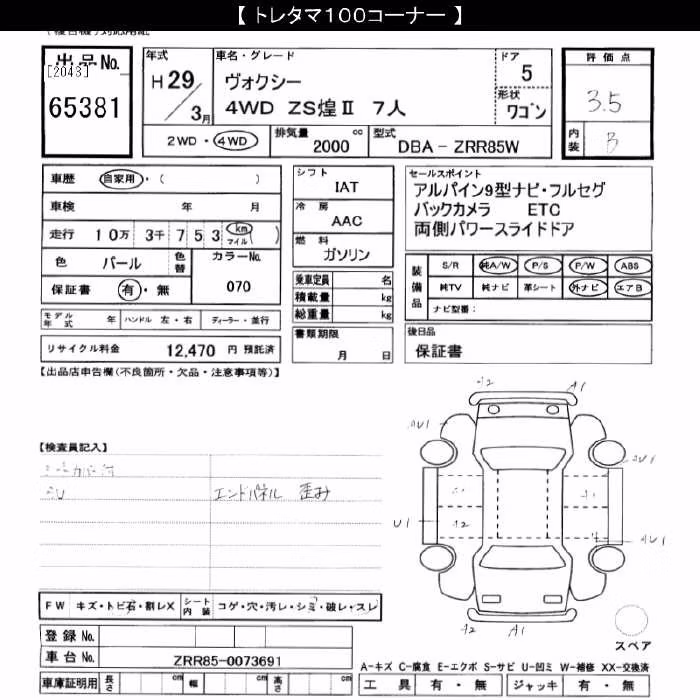 【 トレタマ100コーナー 】
出品No.
[2043]
65381
年式
H29/3月
車名・グレード
ヴォクシー
4WD ZS煌Ⅱ 7人
ドア
5
形状
ワゴン
2WD・4WD
排気量 cc
2000
型式
DBA-ZRR85W
評価点
3.5
内装
B
車歴 自家用・( )
車検 年 月
走行 10万 3千 753 km マイル ( )
色 パール
色替
カラーNo.
070
保証書 有・無
シフト
IAT
冷房
AAC
燃料
ガソリン
乗車定員 名
積載量 kg
総重量 kg
セールスポイント
アルパイン9型ナビ・フルセグ
バックカメラ ETC
両側パワースライドドア
装備品
S/R 純A/W P/S P/W ABS
純TV 純ナビ 革シート 外ナビ エアB
ナビ型番:
モデル年式 年 ハンドル 左・右 ディーラー・並行
リサイクル料金 12,470 円 預託済
書類期限
月 日
後日品
保証書
【出品店申告欄(不良箇所・欠品・注意事項等)】
【検査員記入】
エンドパネル 歪み
A2 A1
AU1
AU1
A1 A1
U1 A2
AU1
A2 A1
スペア
FW キズ・トビ石・割レX シート内装 コゲ・穴・汚レ・シミ・破レ・スレ
登録No.
車台No. ZRR85-0073691
A-キズ C-腐食 E-エクボ S-サビ U-凹ミ W-補修 XX-交換済
車庫証明用 長さ cm 幅 cm 高さ cm
工具 有・無 ジャッキ 有・無